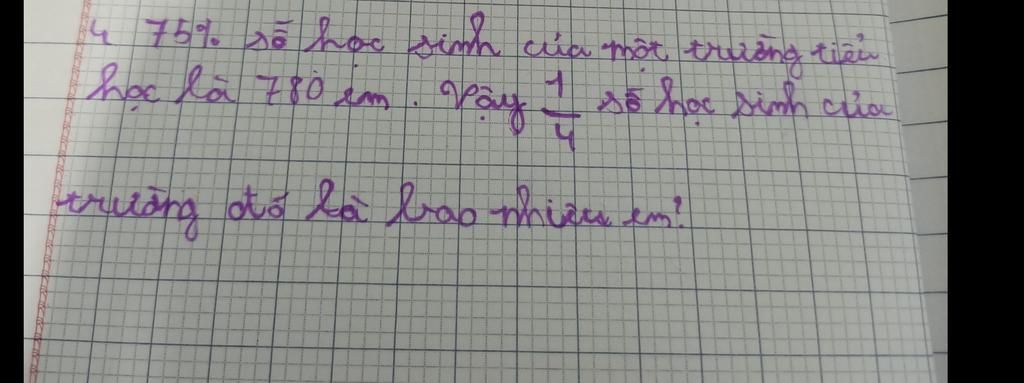 4 75% số học sinh của một trường tiểu
học là 780 em. Vậy 1/4 số học sinh của
trường đó là bao nhiêu em?